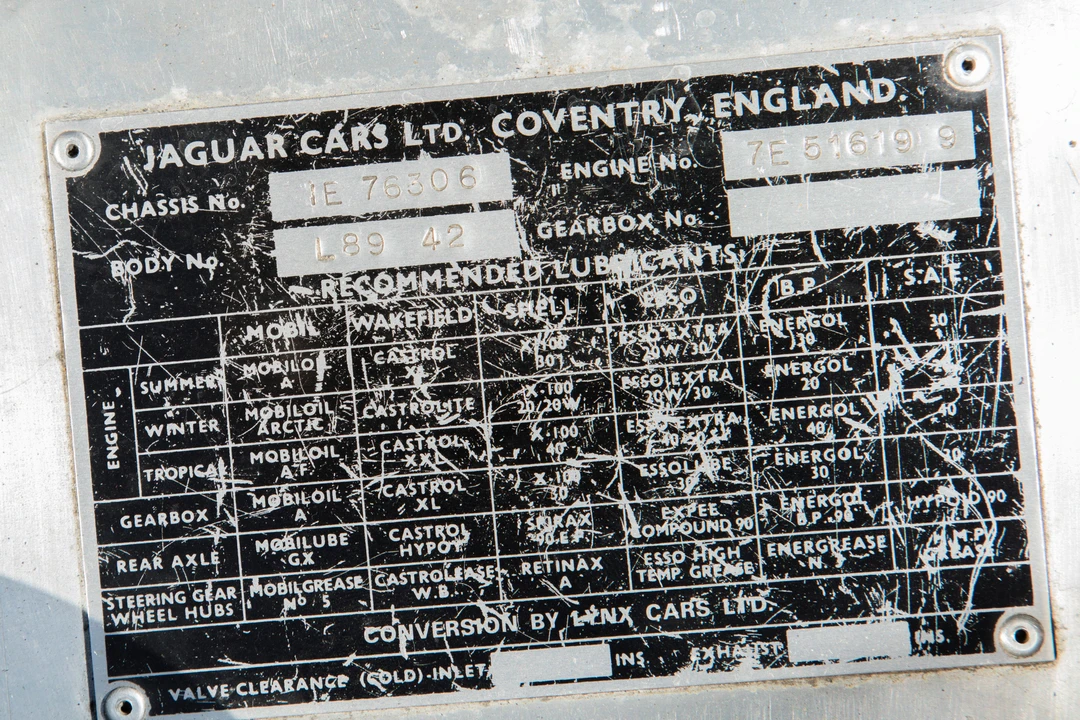 JAGUAR CARS LTD. COVENTRY, ENGLAND.
CHASSIS No. 1E 76306 ENGINE No. 7E 51619 9
BODY No. L89 42 GEARBOX No.
RECOMMENDED LUBRICANTS
MOBIL WAKEFIELD SHELL ESSO B.P. S.A.E.
ENGINE
SUMMER MOBILOIL A CASTROL XL X-100 30 ESSO EXTRA 20W/30 ENERGOL 30 30
WINTER MOBILOIL ARCTIC CASTROLITE X-100 20/20W ESSO EXTRA 20W/30 ENERGOL 20
TROPICAL MOBILOIL A.F. CASTROL XXL X-100 40 ESSO EXTRA ENERGOL 40 40
GEARBOX MOBILOIL A CASTROL XL X-100 30 ESSOLUBE 30 ENERGOL 30 30
REAR AXLE MOBILUBE GX CASTROL HYPOY SPIRAX 90.E.P. EXPEE COMPOUND 90 ENERGOL B.P. 90 HYPOID 90
STEERING GEAR WHEEL HUBS MOBILGREASE No 5 CASTROLEASE W.B. RETINAX A ESSO HIGH TEMP. GREASE ENERGREASE GREASE
CONVERSION BY LYNX CARS LTD.
VALVE CLEARANCE (COLD) INLET INS. EXHAUST INS.